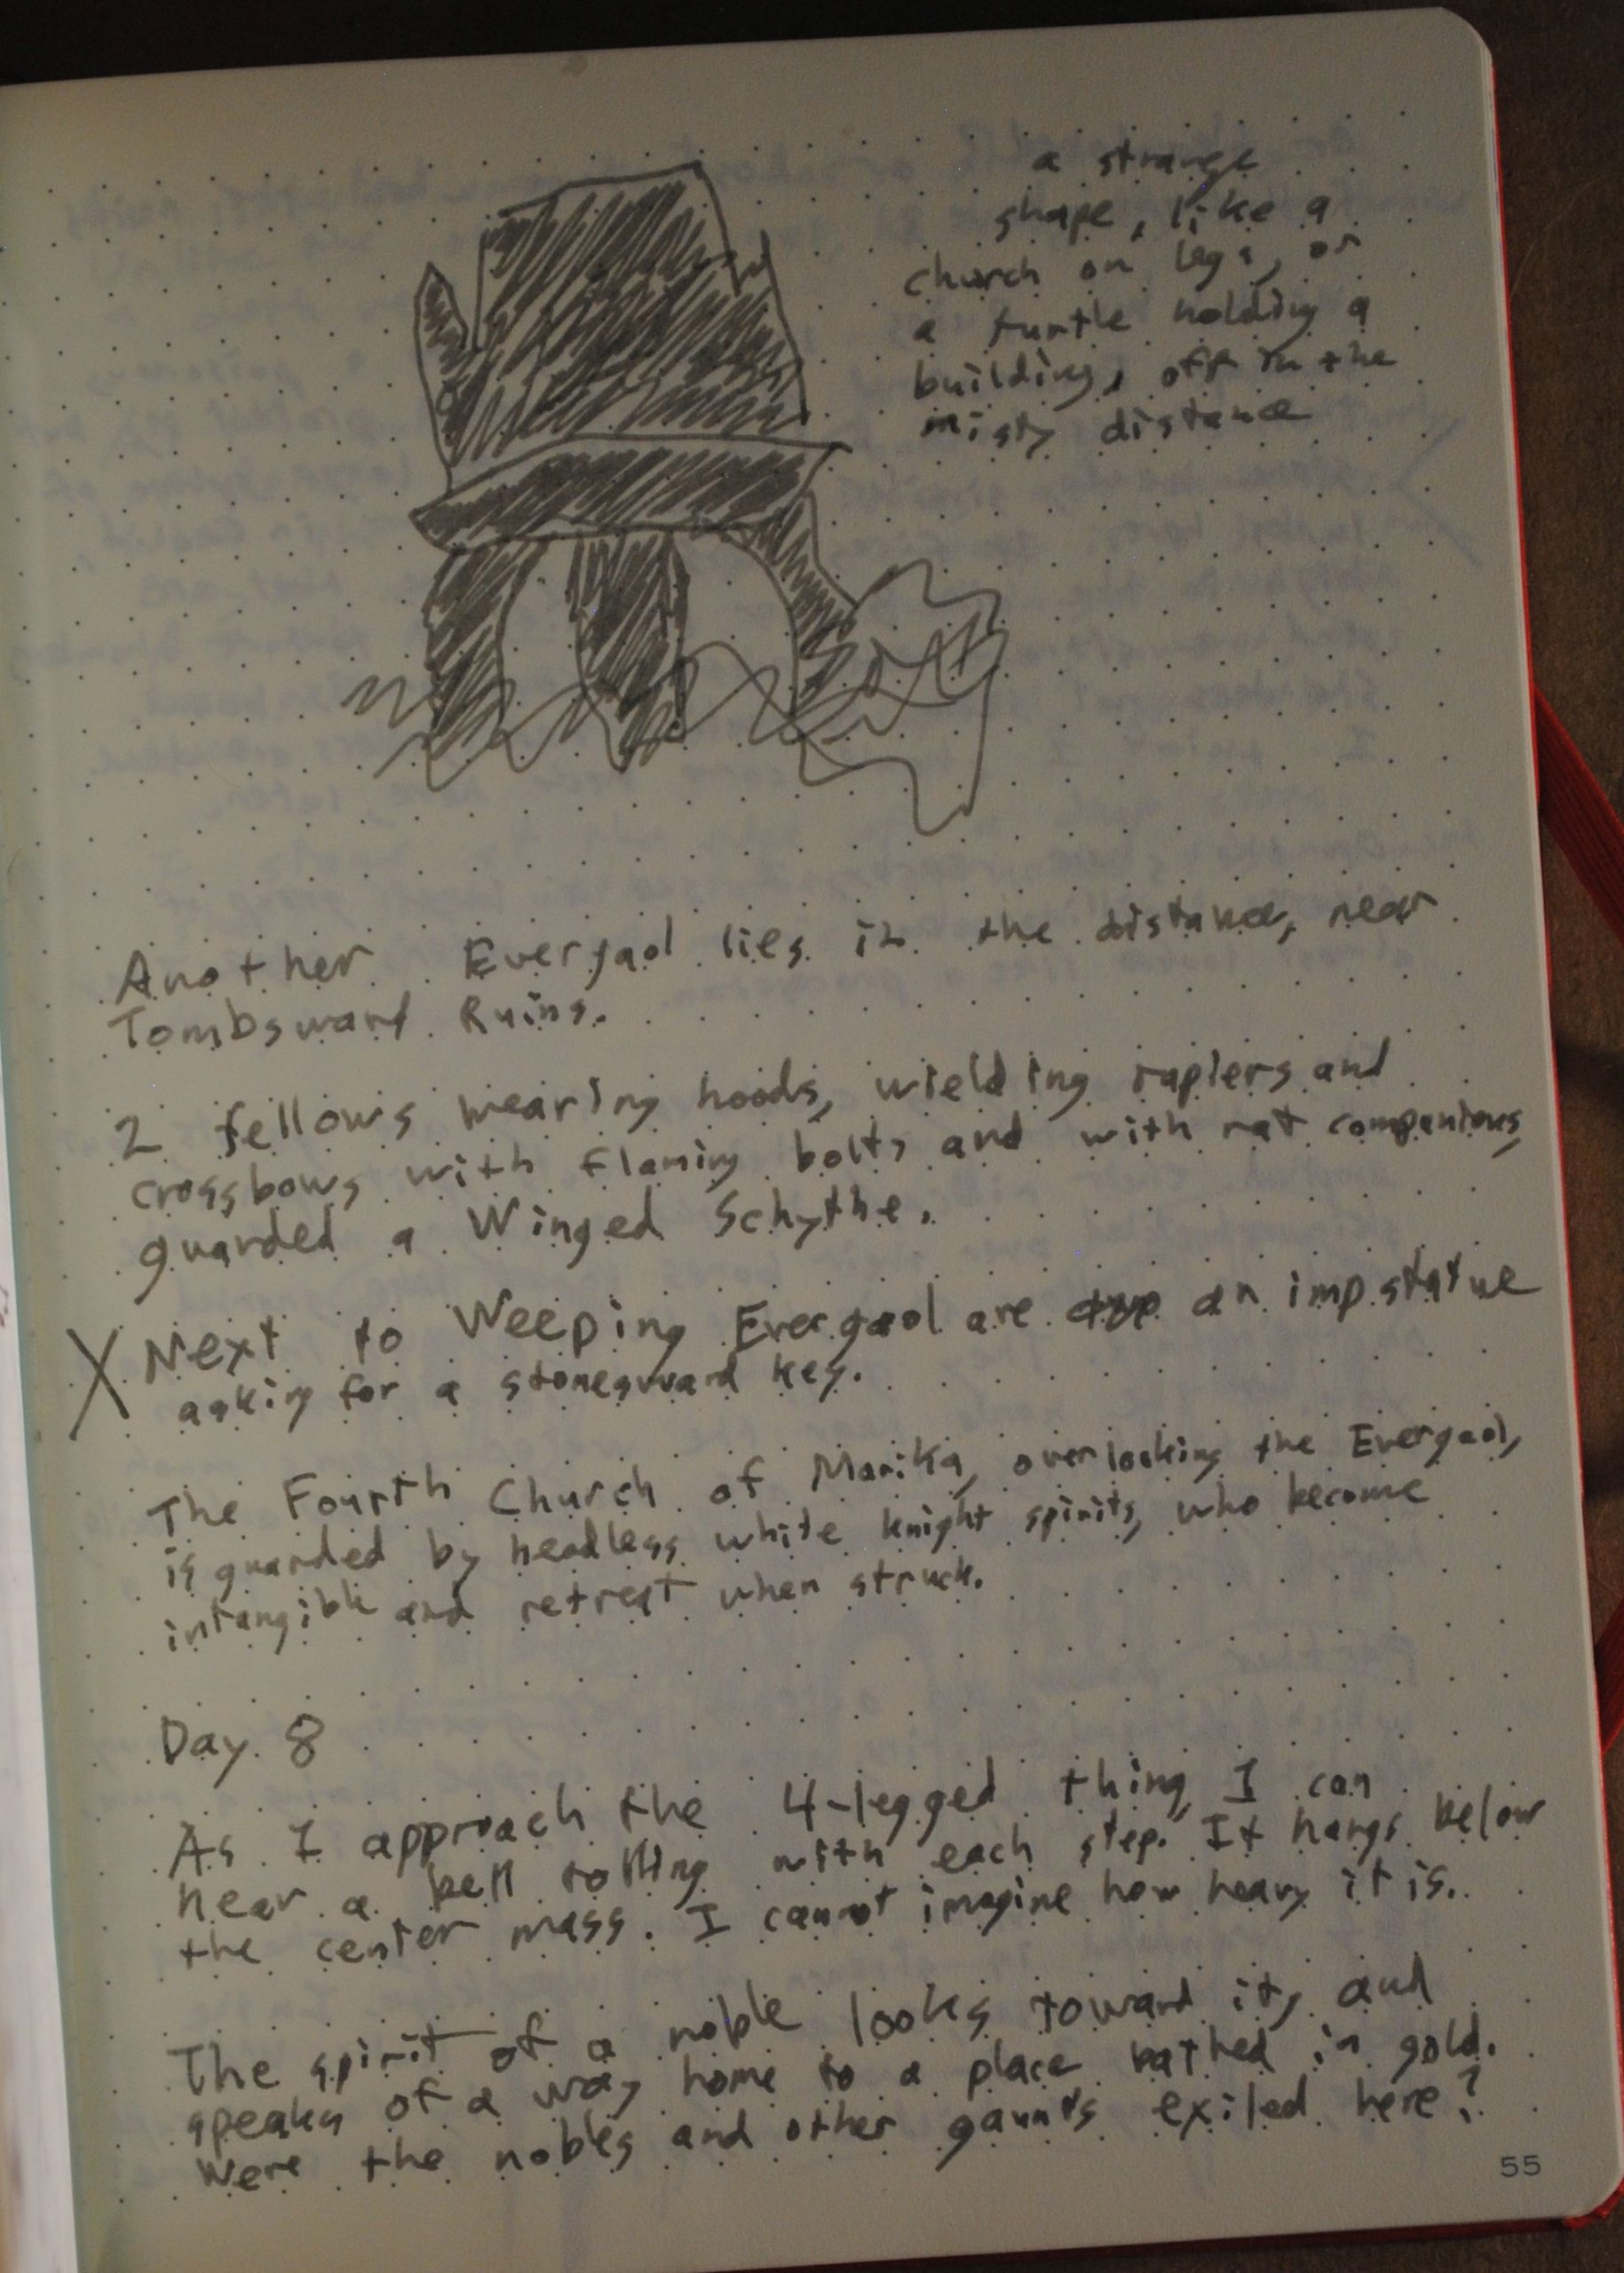 a strange
shape, like a
church on legs, or
a turtle holding a
building, off in the
misty distance
Another Evergaol lies in the distance, near
Tombsward Ruins.
2 fellows wearing hoods, wielding rapiers and
crossbows with flaming bolts and with rat companions,
guarded a Winged Schythe.
X Next to Weeping Evergaol are an imp statue
asking for a stonesward key.
The Fourth Church of Marika, overlooking the Evergaol,
is guarded by headless white knight spirits, who become
intangible and retreat when struck.
Day 8
As I approach the 4-legged thing, I can
hear a bell tolling with each step. It hangs below
the center mass. I cannot imagine how heavy it is.
The spirit of a noble looks toward it, and
speaks of a way home to a place bathed in gold.
Were the nobles and other gaunts exiled here?
55